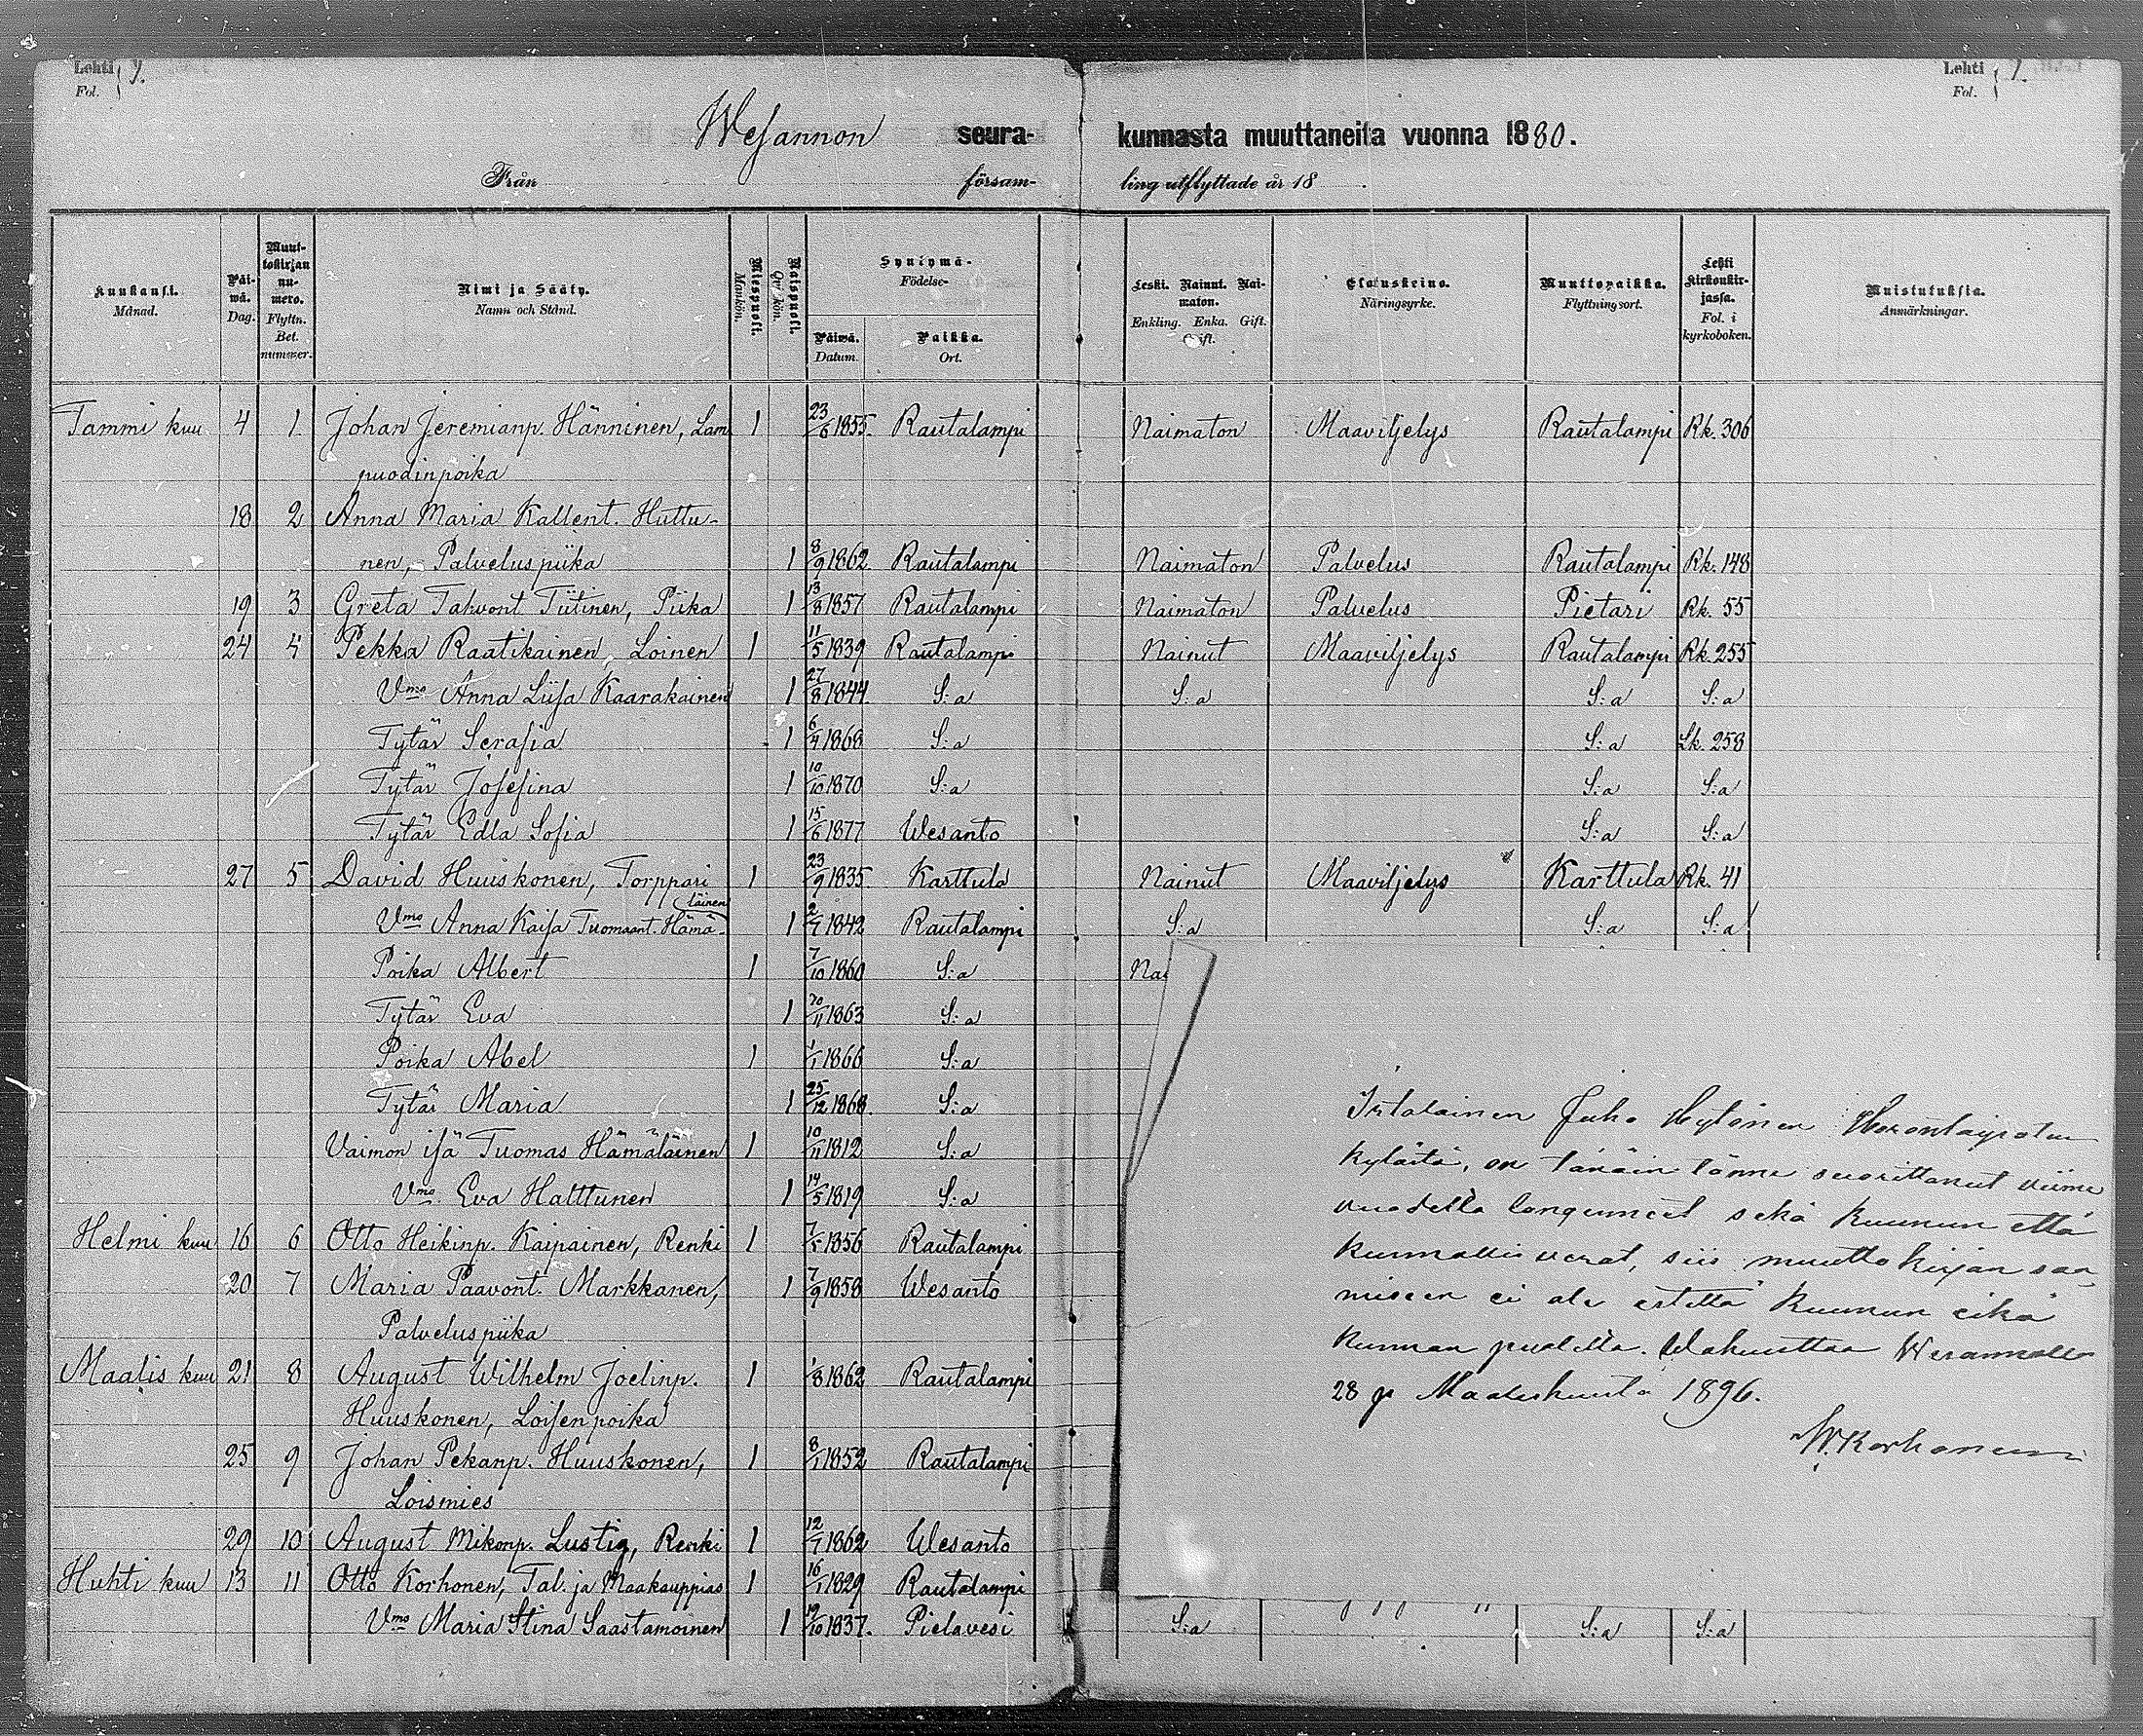 Lehti 9.
Fol.
Lehti 9.
Fol.
Wesannon seura- kunnasta muuttaneita vuonna 1880.
Från försam- ling utflyttade år 18 .
Kuukausi. Månad.
Päiwä. Dag.
Muuttokirjan numero. Flyttn. Bet. nummer.
Nimi ja Sääty. Namn och Stånd.
Miespuoli. Mankön.
Naispuoli. Qv. kön.
Syntymä- Födelse-
Päiwä. Datum.
Paikka. Ort.
Leski. Nainut. Naimaton. Enkling. Enka. Gift. Ogift.
Elatuskeino. Näringsyrke.
Muuttopaikka. Flyttningsort.
Lehti kirkonkirjassa. Fol. i kyrkoboken.
Muistutuksia. Anmärkningar.
Tammi kuu 4 1 Johan Jeremianp. Hänninen, Lam 1 23/6 1855. Rautalampi Naimaton Maaviljelys Rautalampi Rk. 306
puodinpoika
18 2 Anna Maria Kallent. Huttu-
nen, Palveluspiika 1 8/9 1862. Rautalampi Naimaton Palvelus Rautalampi Rk. 148
19 3 Greta Tahvont Tiitinen, Piika 1 13/8 1857 Rautalampi Naimaton Palvelus Pietari Rk. 55
24 4 Pekka Raatikainen, Loinen 1 11/5 1839 Rautalampi Nainut Maaviljelys Rautalampi Rk. 255
Vmo Anna Liisa Kaarakainen 1 27/8 1844. S:a S:a S:a S:a
Tytär Serafia 1 6/4 1868 S:a S:a Lk. 258
Tytär Josefina 1 10/10 1870 S:a S:a S:a
Tytär Edla Sofia 1 15/6 1877 Wesanto S:a S:a
27 5 David Huuskonen, Torppari 1 23/9 1835. Karttula Nainut Maaviljelys Karttula Rk. 41
läinen
Vmo Anna Kaisa Tuomaant. Hämä- 1 1842 Rautalampi S:a S:a S:a
Poika Albert 1 7/10 1860 S:a Nai
Tytär Eva 1 1863 S:a
Poika Abel 1 1/1 1866 S:a
Tytär Maria 1 25/12 1868. S:a
Vaimon isä Tuomas Hämäläinen 1 10/11 1812 S:a
Vmo. Eva Halttunen 1 14/5 1819 S:a
Helmi kuu 16 6 Otto Heikinp. Kaipainen, Renki 1 7/5 1856 Rautalampi
20 7 Maria Paavont. Markkanen, 1 7/9 1858 Wesanto
Palveluspiika
Maalis kuu 21 8 August Wilhelm Joelinp. 1 1/8 1862 Rautalampi
Huuskonen, Loisenpoika
25 9 Johan Pekanp. Huuskonen, 1 8/1 1852 Rautalampi
Loismies
29 10 August Mikonp. Lustig, Renki 1 1862 Wesanto
Huhti kuu 13 11 Otto Korhonen, Tal. ja Maakauppias 1 16/1 1829 Rautalampi
Vmo Maria Stina Saastamoinen 1 1837. Pielavesi S:a S:a S:a
Juho
kylästä, on tänäin tänne suorittanut viime
vuodelta sekä kruunun että
kunnallis verot, siis muutto kirjan saa-
miseen ei ole estettä kruunun eikä
kunnan puolelta. Wakuuttaa Wesannolla
28 p Maaliskuuta 1896.
W. Korhonen